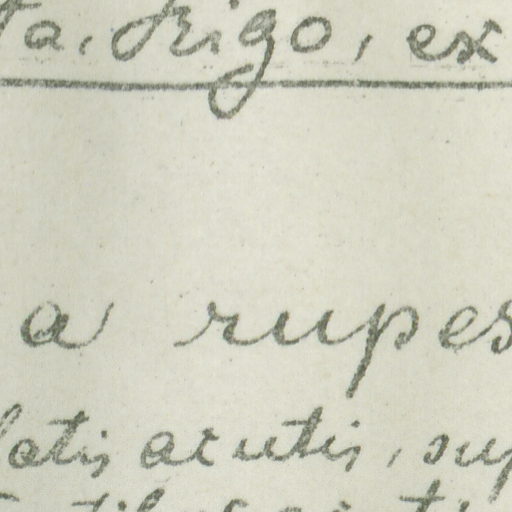 ta, Rigo, ex
a rupes
latis acutis, sup